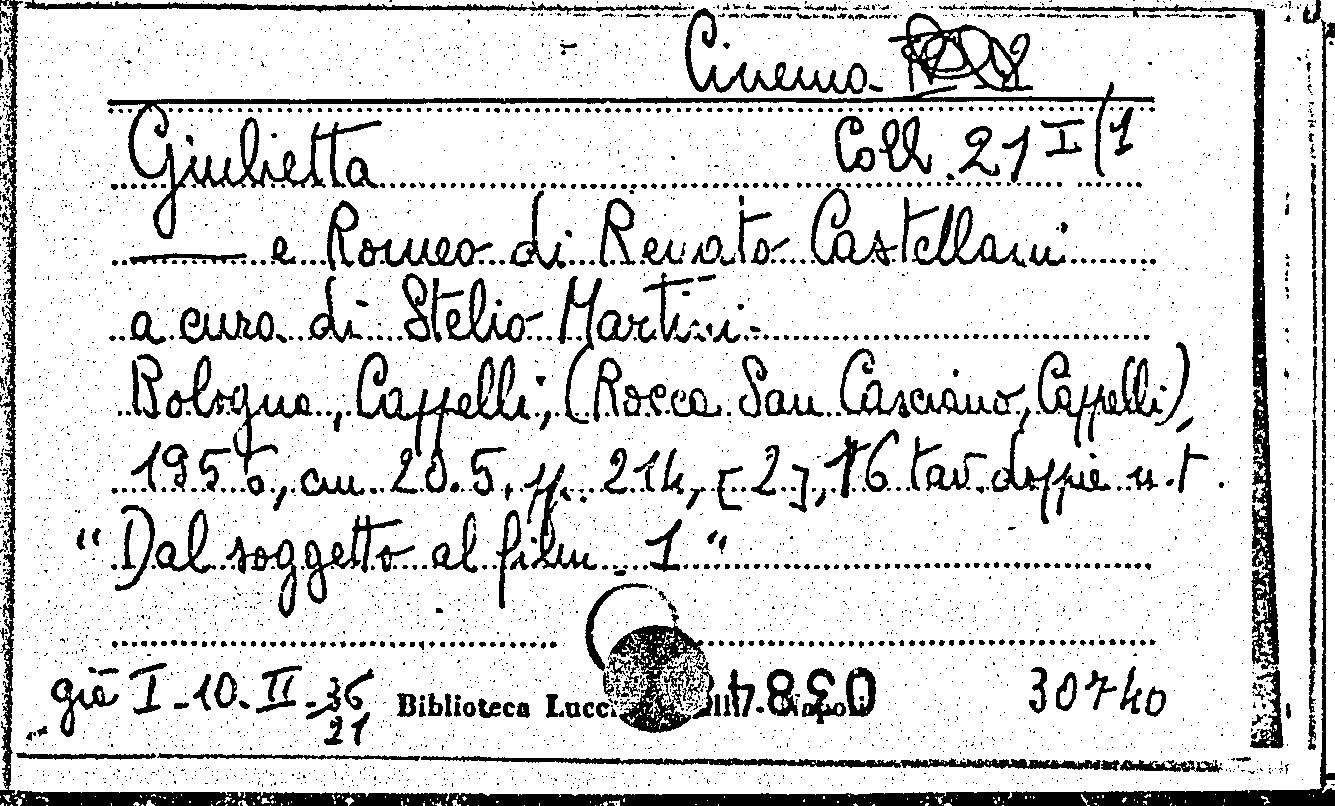 Cinema
Giulietta Coll. 21 I/1
e Romeo di Renato Castellani
a cura di Stelio Martini.
Bologna, Cappelli, (Rocca San Casciano, Cappelli),
1956, cm. 20.5, pp. 214, [2], 16 tav. doppie n.t.
"Dal soggetto al film 1"
già I-10.II-36 Biblioteca Lucc Napoli 30740
21